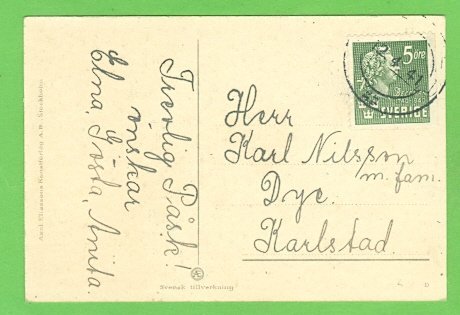 Trevlig Påsk!
önskar
Elna, Gösta, Anita.
Axel Eliassons Konstförlag A.B. Stockholm
Svensk tillverkning
5 öre
SVERIGE
Herr
Karl Nilsson
m. fam.
Dye.
Karlstad.